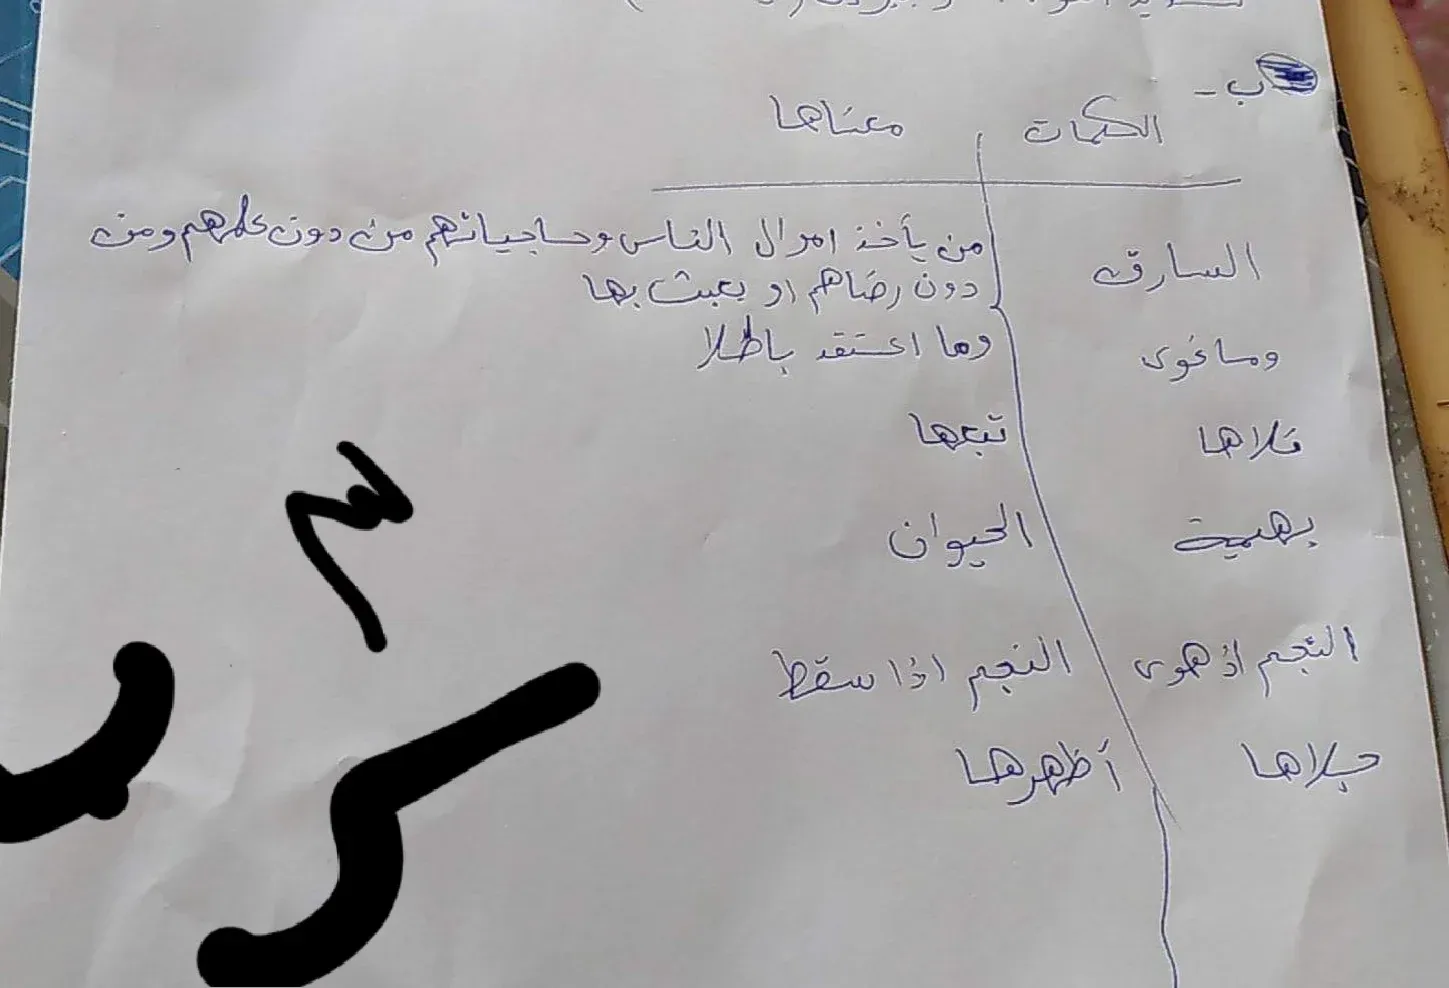 ب -
الكلمات معناها
السارق من يأخذ اموال الناس وحاجياتهم من دون علمهم ومن
دون رضاهم او يعبث بها
وماغوى وما اعتقد باطلا
تلاها تبعها
بهيمة الحيوان
النجم اذ هوى النجم اذا سقط
جلاها أظهرها